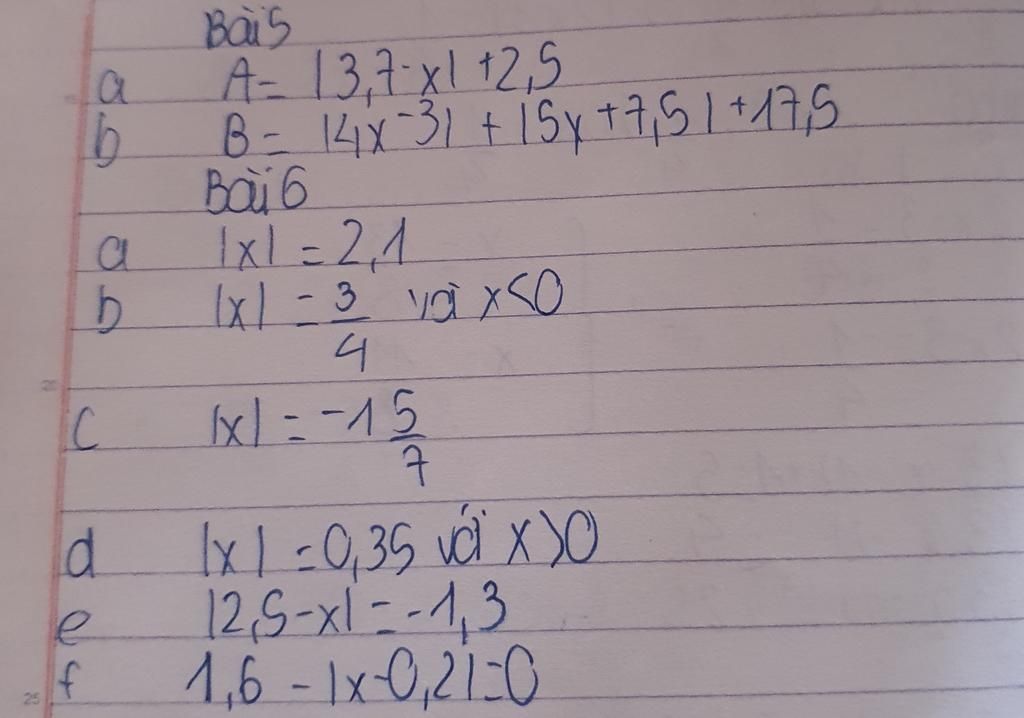 Bài 5
a A = |3,7-x| +2,5
b B = |4x-3| + |5y+7,5| +17,5
Bài 6
a |x| = 2,1
b |x| = 3/4 với x<0
c |x| = -1 5/7
d |x| = 0,35 với x>0
e |2,5-x| = -1,3
f 1,6 - |x-0,2|=0
25